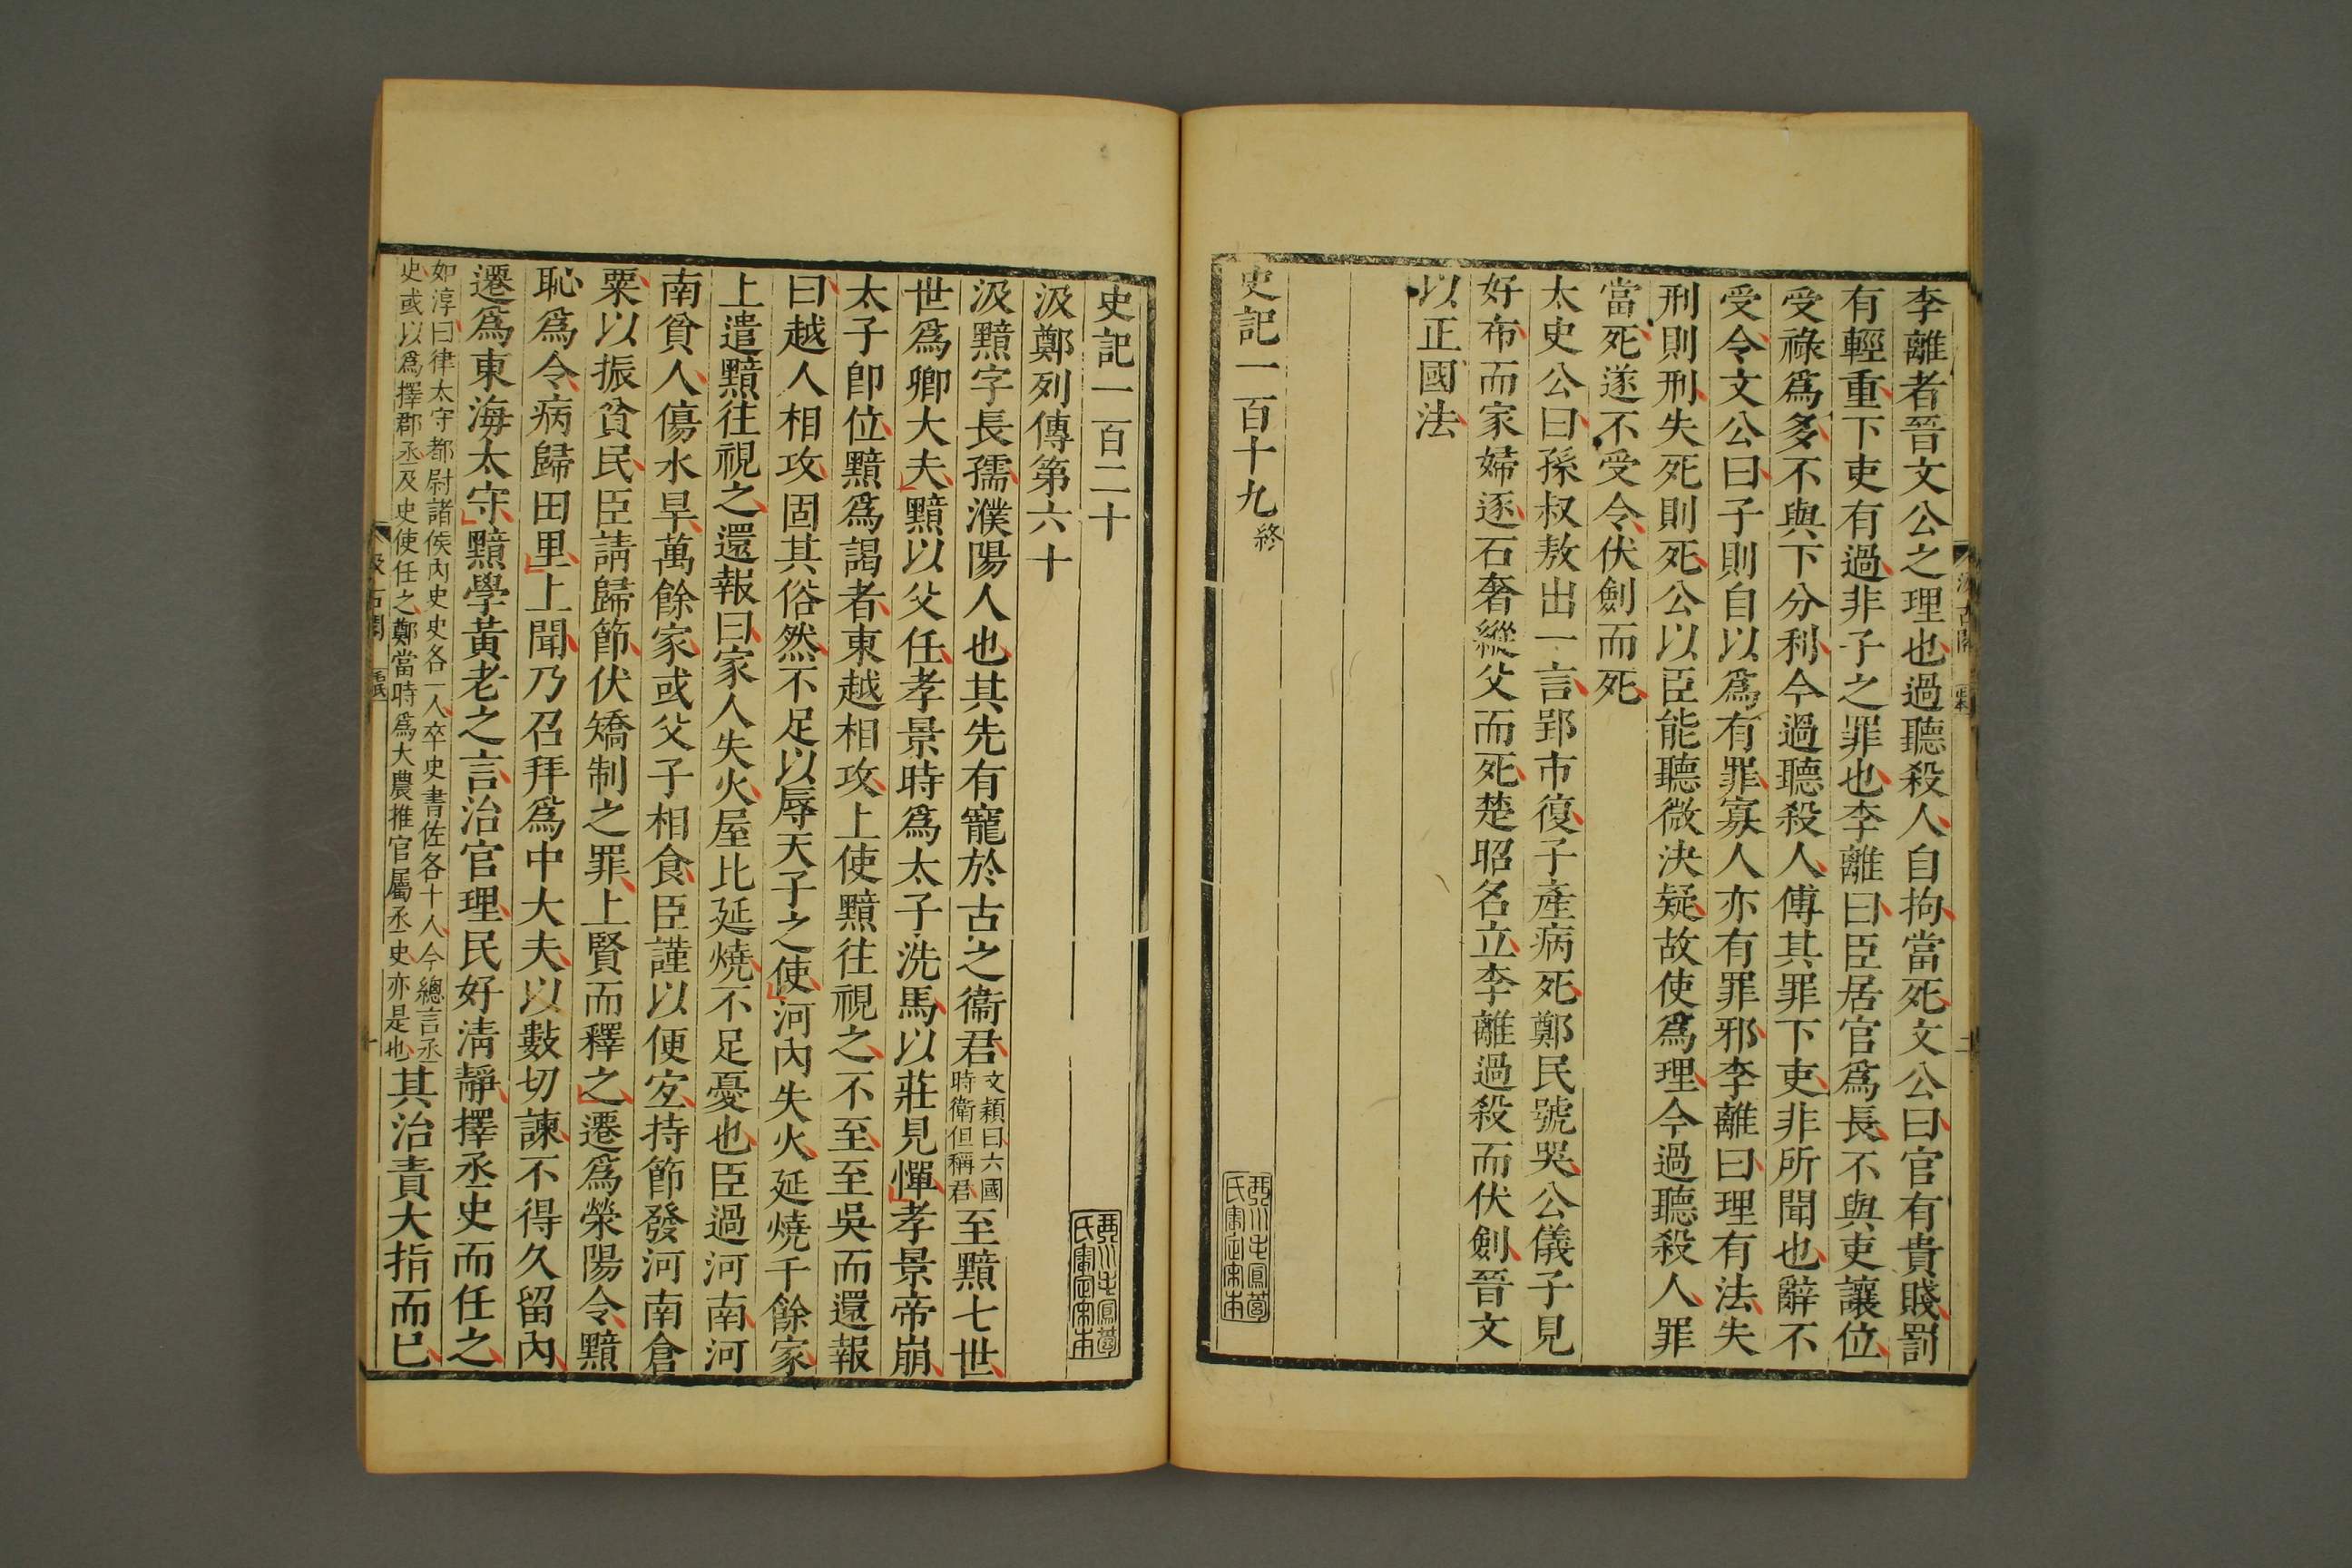 李離者晉文公之理也過聽殺人自拘當死文公曰官有貴賤罰
有輕重下吏有過非子之罪也李離曰臣居官爲長不與吏讓位
受祿爲多不與下分利今過聽殺人傅其罪下吏非所聞也辭不
受令文公曰子則自以爲有罪寡人亦有罪邪李離曰理有法失
刑則刑失死則死公以臣能聽微決疑故使爲理今過聽殺人罪
當死遂不受令伏劍而死
太史公曰孫叔敖出一言郢市復子產病死鄭民號哭公儀子見
好布而家婦逐石奢縱父而死楚昭名立李離過殺而伏劍晉文
以正國法
史記一百十九 終
史記一百二十
汲鄭列傳第六十
汲黯字長孺濮陽人也其先有寵於古之衞君文穎曰六國時衞但稱君至黯七世
世爲卿大夫黯以父任孝景時爲太子洗馬以莊見憚孝景帝崩
太子卽位黯爲謁者東越相攻上使黯往視之不至至吳而還報
曰越人相攻固其俗然不足以辱天子之使河內失火延燒千餘家
上遣黯往視之還報曰家人失火屋比延燒不足憂也臣過河南河
南貧人傷水旱萬餘家或父子相食臣謹以便宜持節發河南倉
粟以振貧民臣請歸節伏矯制之罪上賢而釋之遷爲滎陽令黯
恥爲令病歸田里上聞乃召拜爲中大夫以數切諫不得久留內
遷爲東海太守黯學黃老之言治官理民好淸靜擇丞史而任之
如淳曰律太守都尉諸侯內史史各一人卒史書佐各十人今總言丞史或以爲擇郡丞及史使任之鄭當時爲大農推官屬丞史亦是也其治責大指而已
汲古閣
毛氏